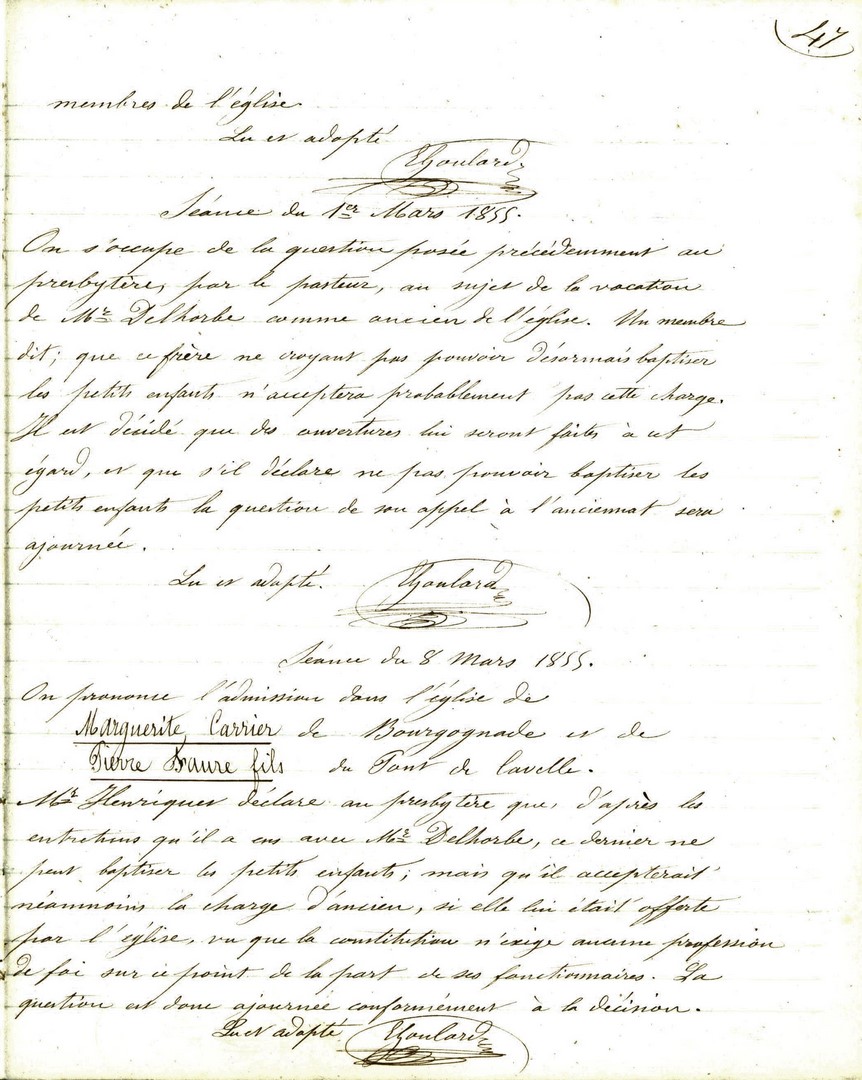 47
membres de l'église.
Lu et adopté
EGoulard
Séance du 1er Mars 1855.
On s'occupe de la question posée précédemment au
presbytère, par le pasteur, au sujet de la vocation
de Mr Delhorbe comme ancien de l'église. Un membre
dit; que ce frère ne croyant pas pouvoir désormais baptiser
les petits enfants n'acceptera probablement pas cette charge.
Il est décidé que des ouvertures lui seront faites à cet
égard, et que s'il déclare ne pas pouvoir baptiser les
petits enfants la question de son appel à l'anciennat sera
ajournée.
Lu et adopté.
EGoulard
Séance du 8 Mars 1855.
On prononce l'admission dans l'église de
Marguerite Carrier de Bourgognade et de
Pierre Faure fils du Pont de Cavelle.
Mr Henriquet déclare au presbytère que, d'après les
entretiens qu'il a eus avec Mr Delhorbe, ce dernier ne
peut baptiser les petits enfants; mais qu'il accepterait
néamnoins la charge d'ancien, si elle lui était offerte
par l'église, vu que la constitution n'exige aucune profession
de foi sur ce point de la part de ses fonctionnaires. La
question est donc ajournée conformément à la décision.
Lu et adopté
EGoulard